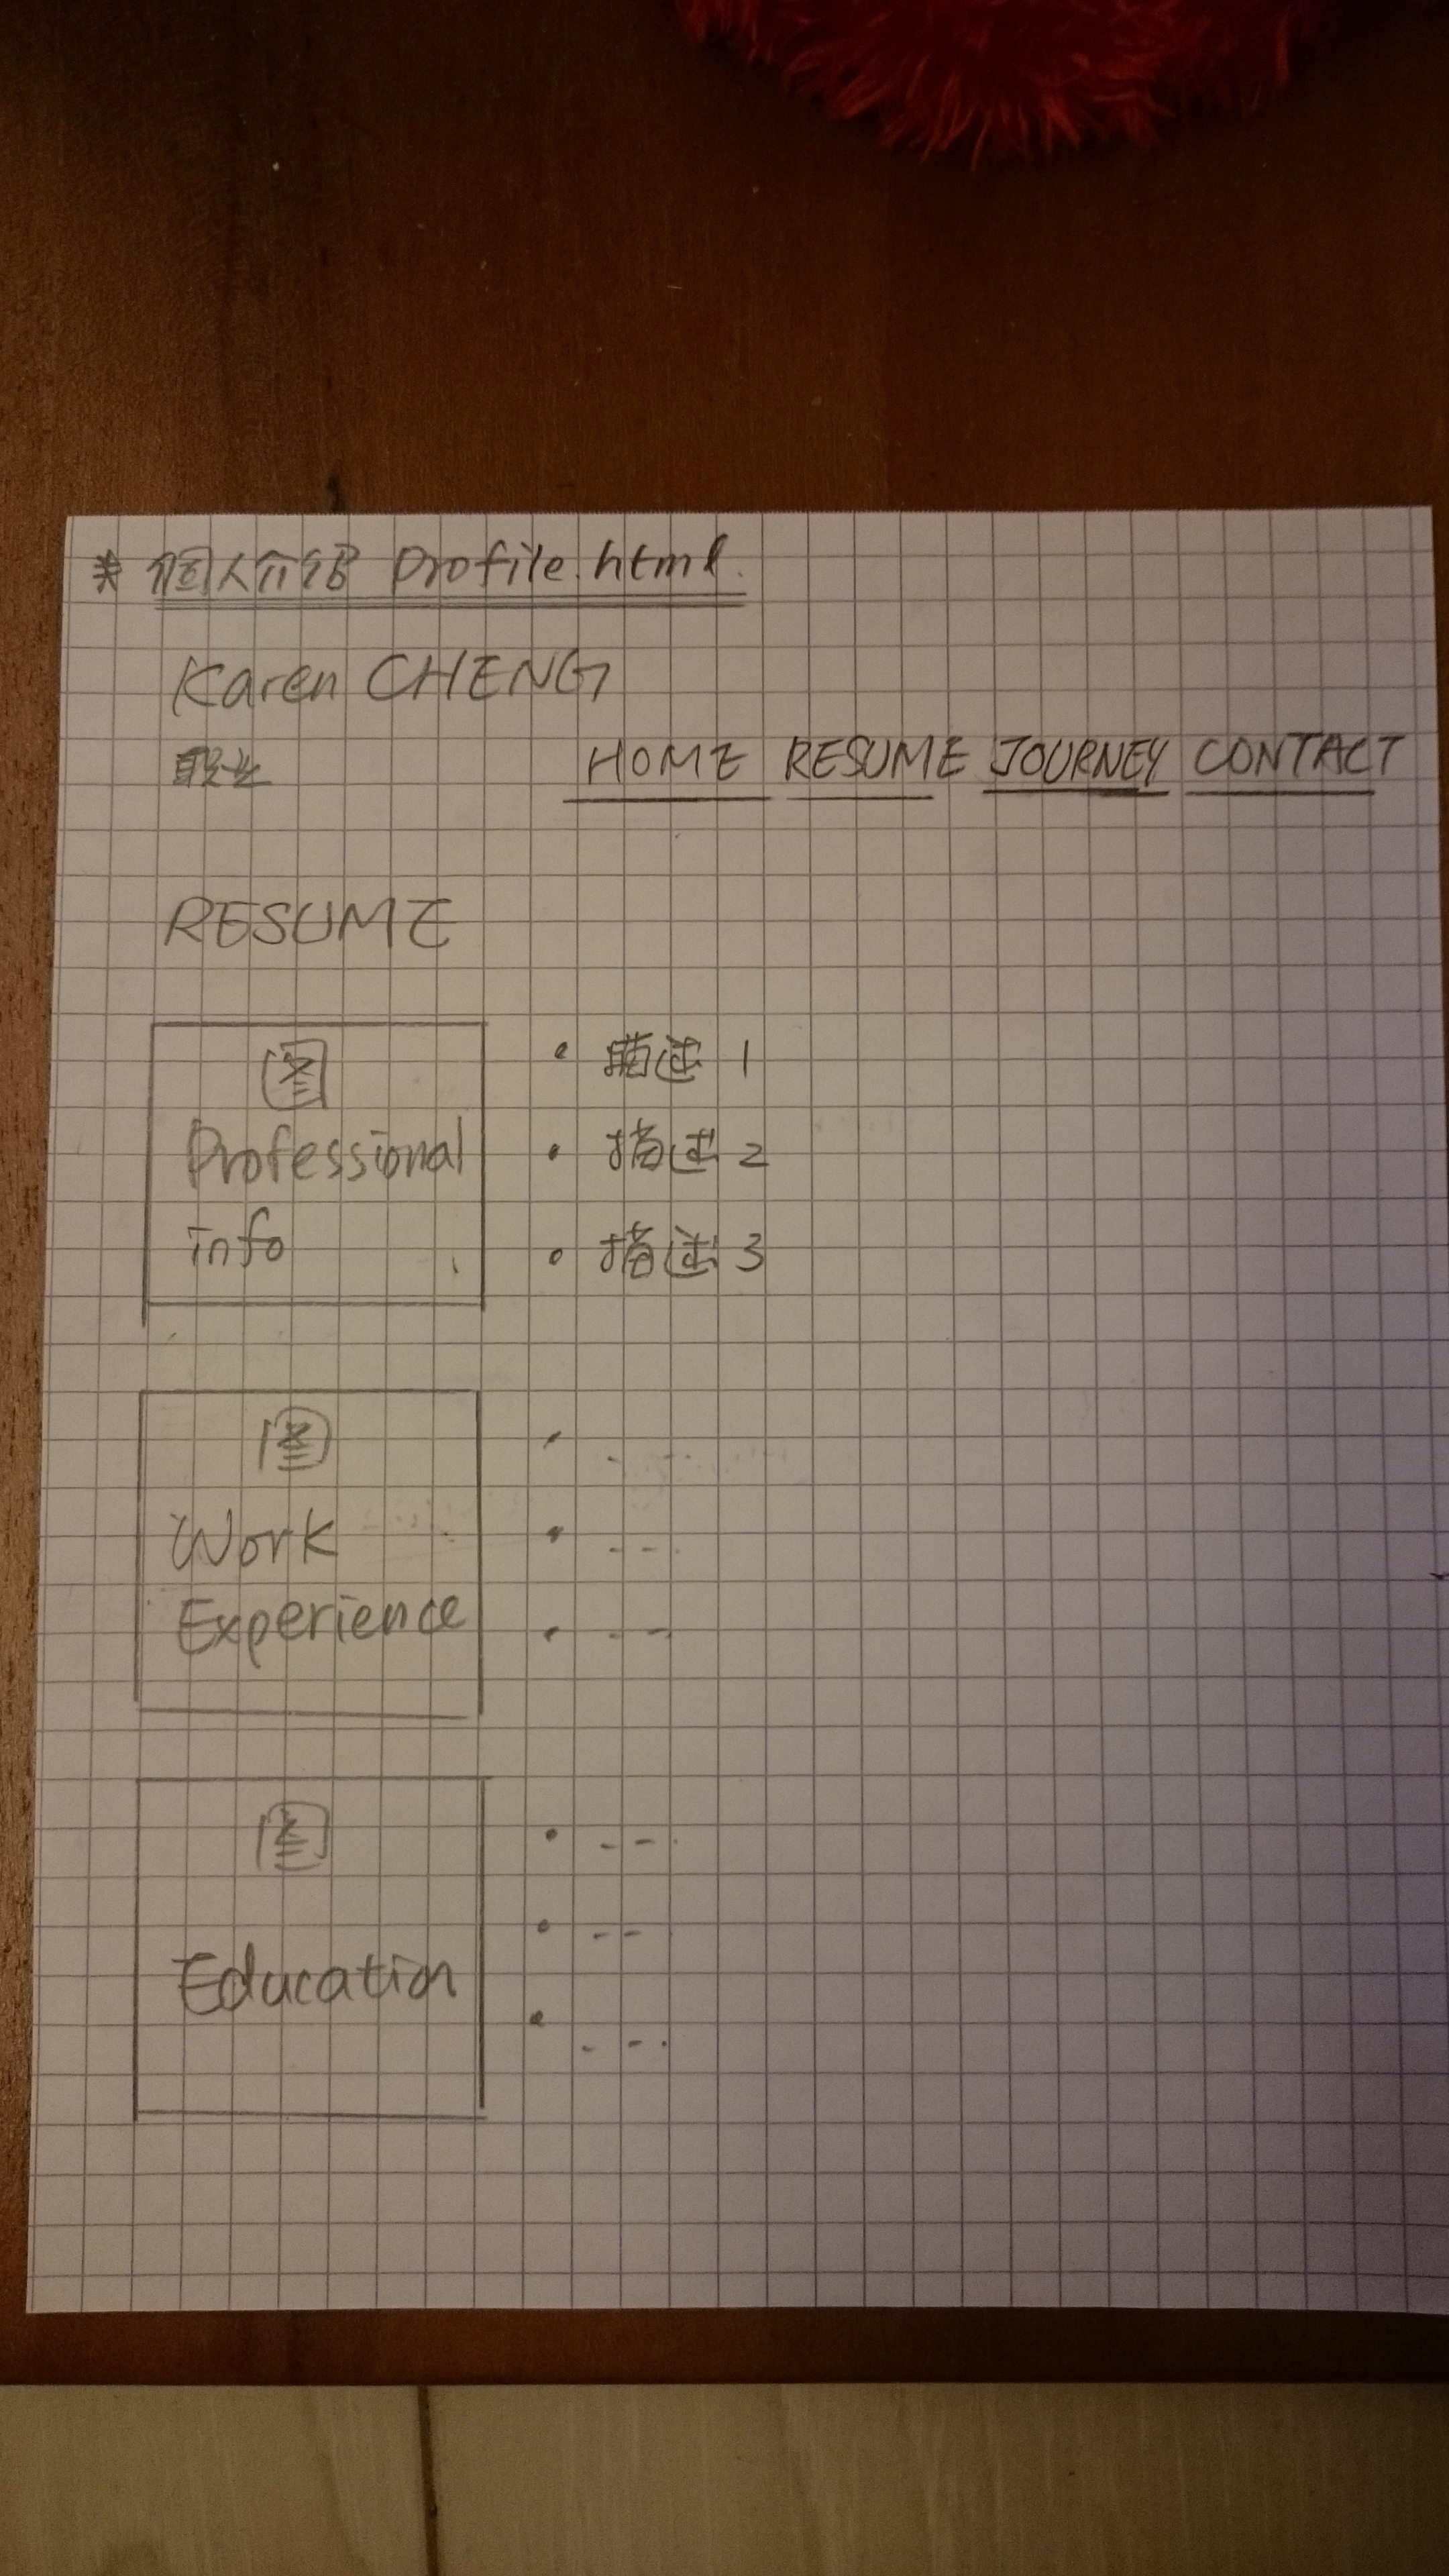 * 個人介紹 Profile.html.
Karen CHENG
职业
HOME RESUME JOURNEY CONTACT
RESUME
图
Professional
info
• 描述 1
• 描述 2
• 描述 3
图
Work
Experience
图
Education